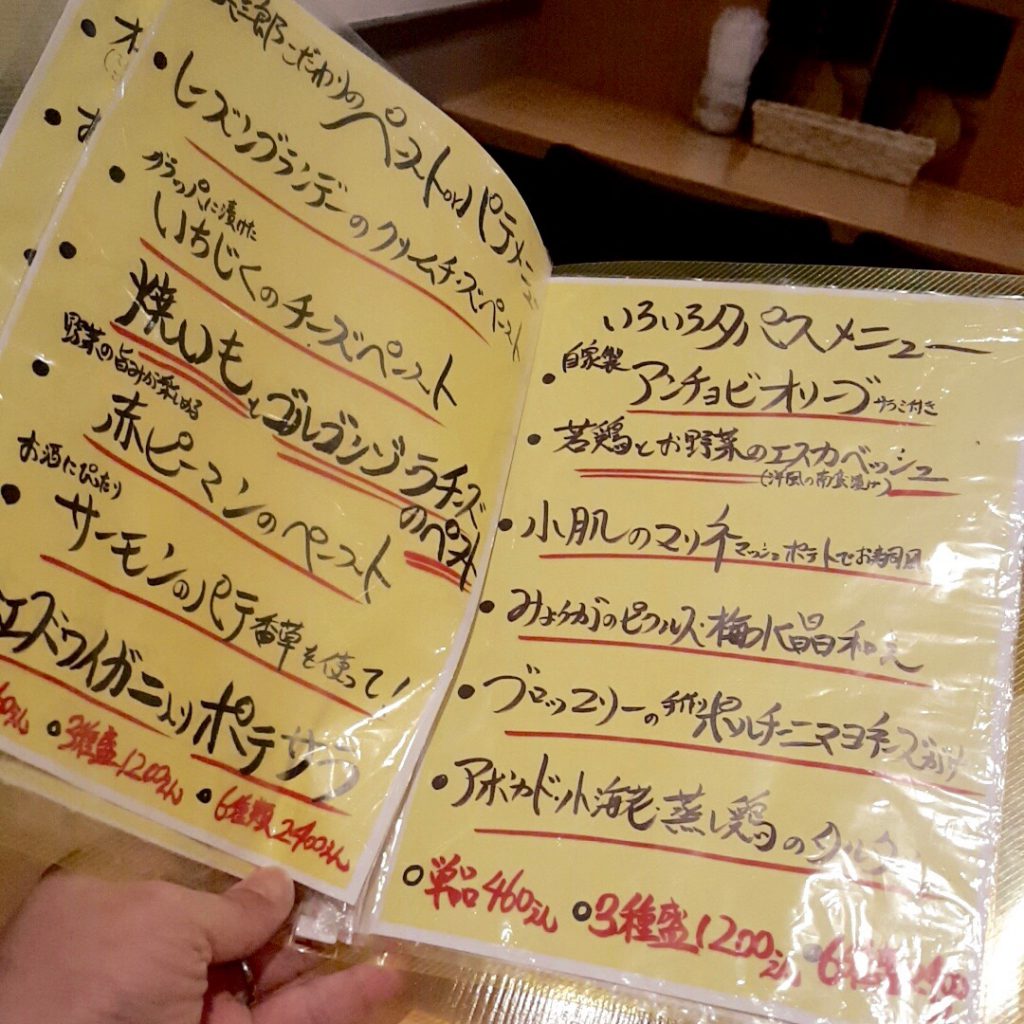 こだわりのペーストのパテメニュ
・レーズンブランデーのクリームチーズペースト
グラッパに漬けた
・いちじくのチーズペースト
・焼いもとゴルゴンゾーラチーズ
のペースト
野菜の旨みが楽しめる
・赤ピーマンのペースト
お酒にぴったり
・サーモンのパテ香草を使って!
ズワイガニ入りポテサラ
60えん ・3種盛1200えん ・6種類2400えん
いろいろタパスメニュー
自家製
・アンチョビオリーブ サラミ付き
・若鶏とお野菜のエスカベッシュ
(洋風の南蛮漬け)
・小肌のマリネ マッシュポテトでお寿司風
・みょうがのピクルス・梅水晶和え
・ブロッコリーの手作りポルチーニマヨチーズがけ
・アボカド・小海老・蒸し鶏のタルタル
・単品460えん ・3種盛1200えん